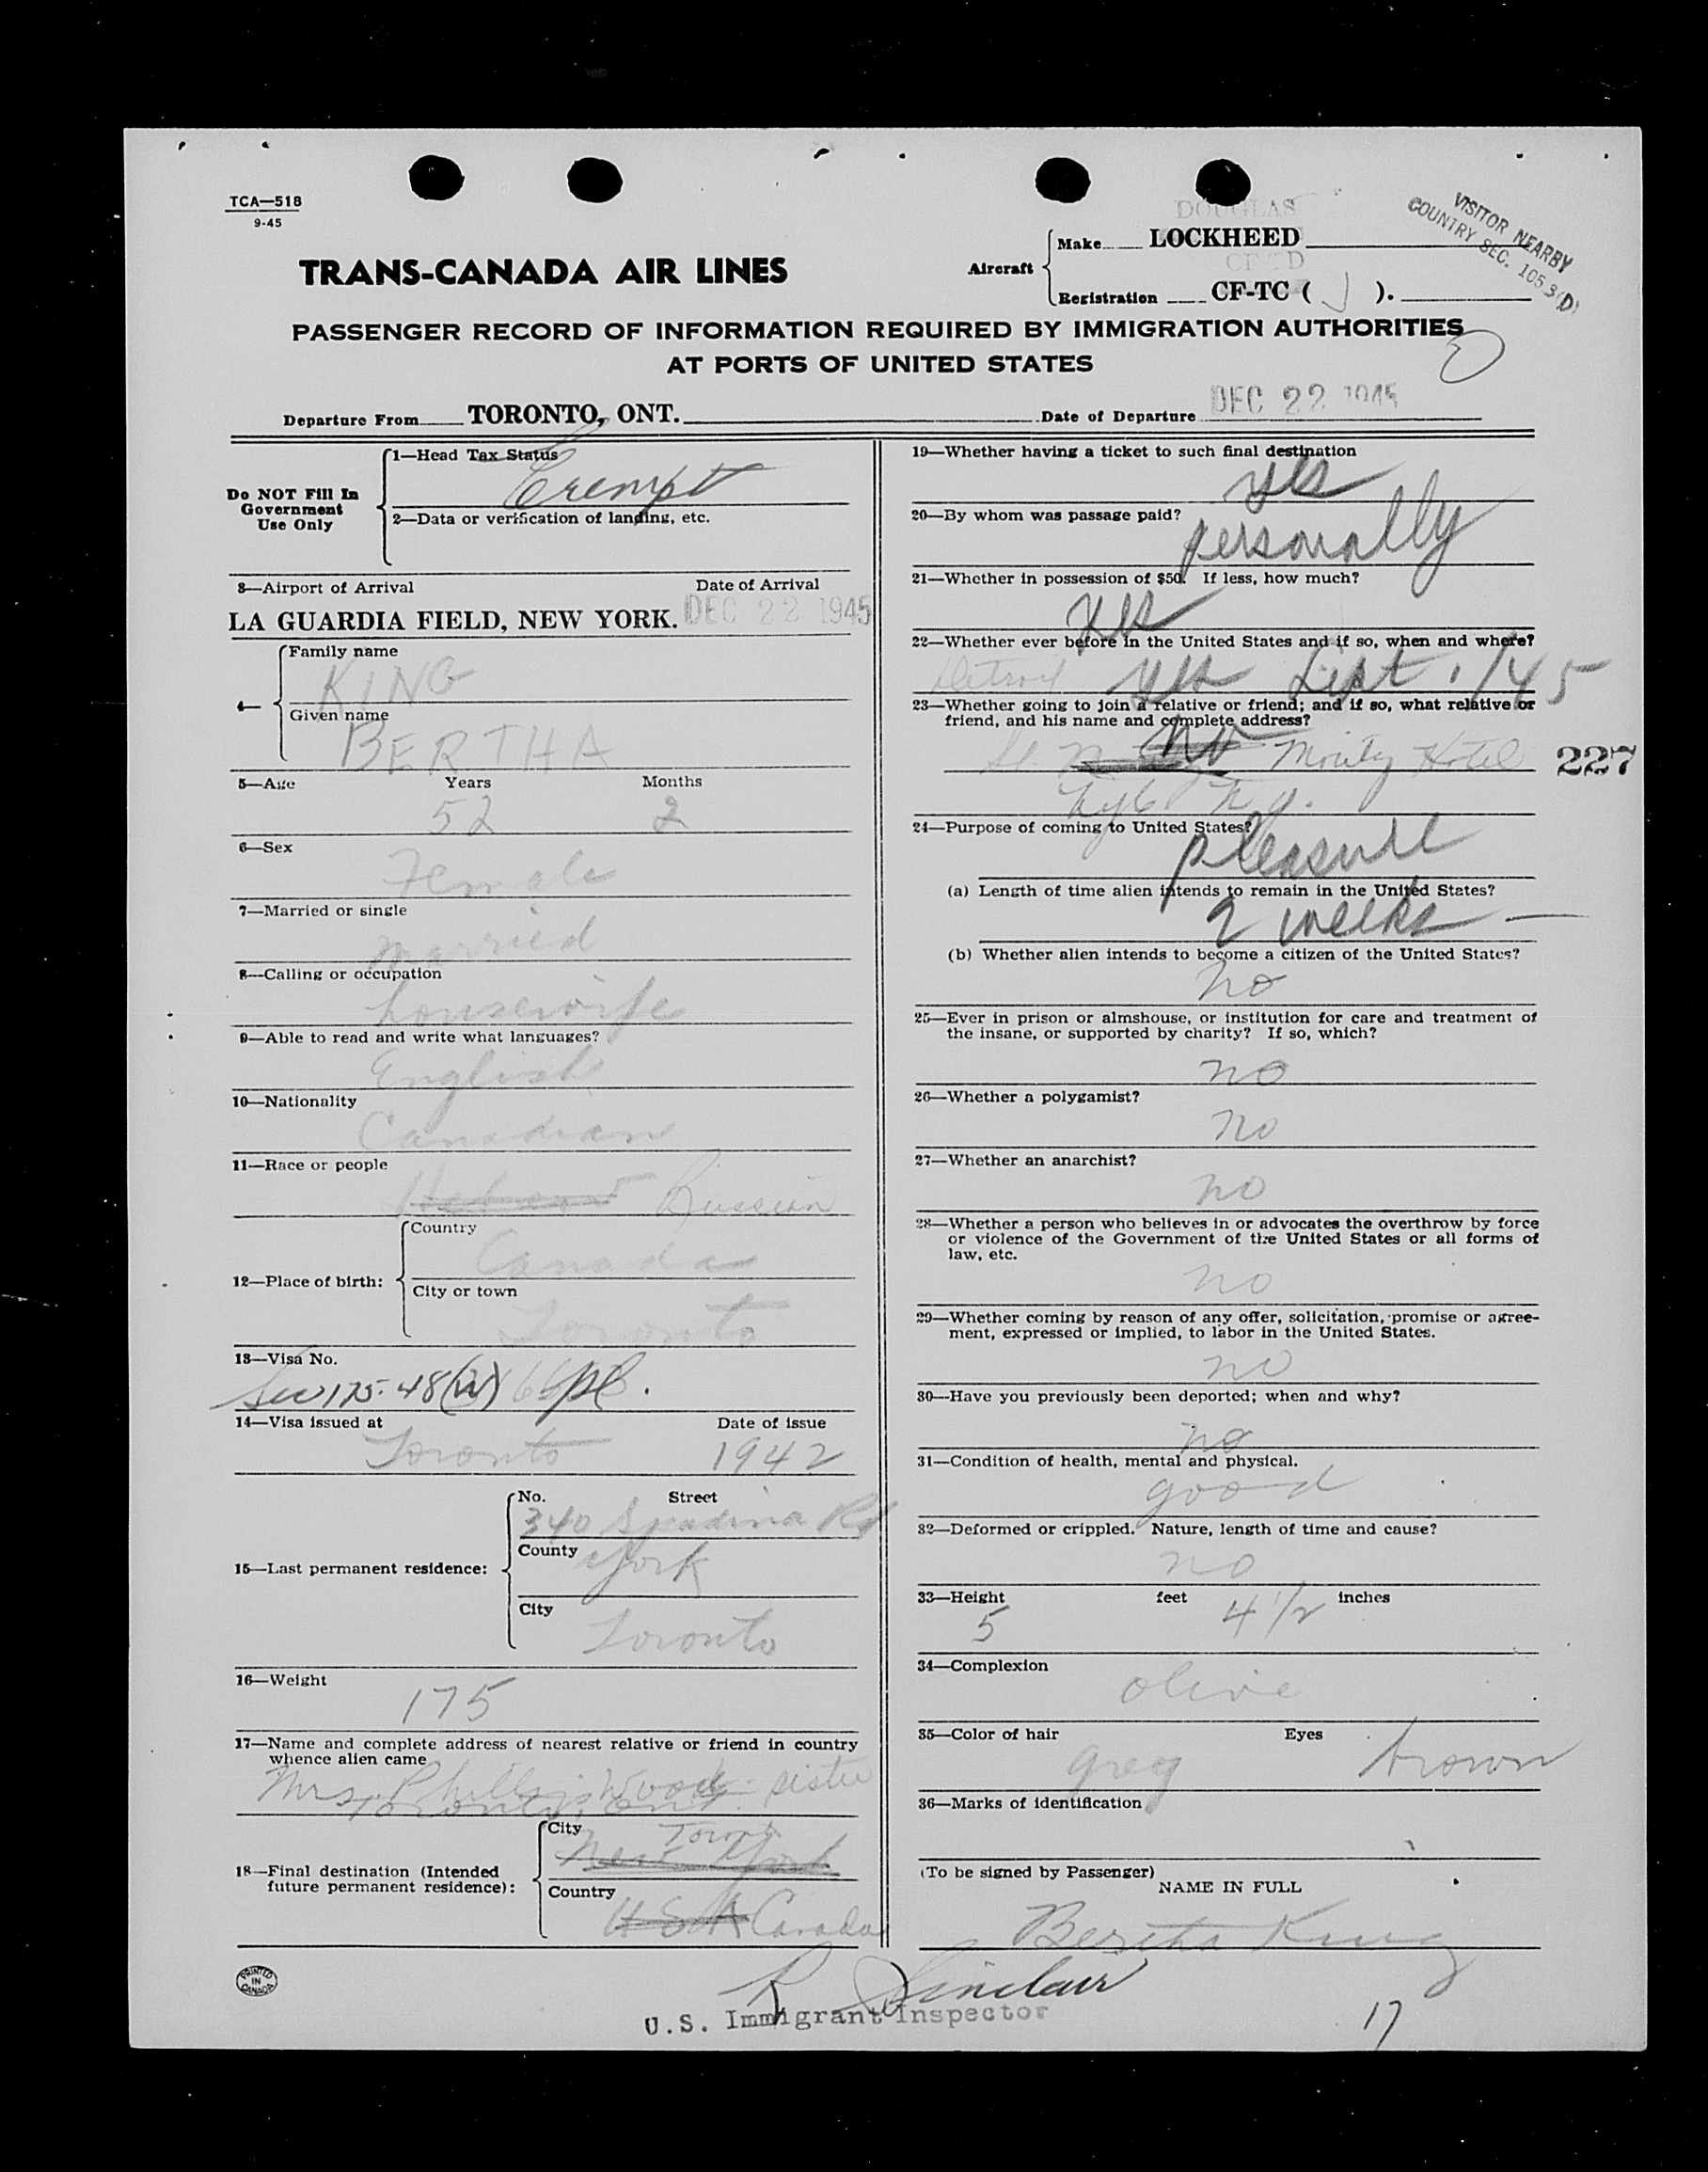 TCA—518
9-45
VISITOR NEARBY
COUNTRY SEC. 105.3(D)
DOUGLAS
Make LOCKHEED
TRANS-CANADA AIR LINES
Aircraft
CF-TD
Registration CF-TC ( J ).
PASSENGER RECORD OF INFORMATION REQUIRED BY IMMIGRATION AUTHORITIES
AT PORTS OF UNITED STATES
Departure From TORONTO, ONT. Date of Departure DEC 22 1945
Do NOT Fill In
Government
Use Only
1—Head Tax Status
Exempt
2—Data or verification of landing, etc.
3—Airport of Arrival Date of Arrival
LA GUARDIA FIELD, NEW YORK. DEC 22 1945
4—
Family name
KING
Given name
BERTHA
5—Age Years Months
52 2
6—Sex
Female
7—Married or single
married
8—Calling or occupation
housewife
9—Able to read and write what languages?
English
10—Nationality
Canadian
11—Race or people
Hebrew Russian
12—Place of birth:
Country
Canada
City or town
Toronto
13—Visa No.
Sec 175.48
14—Visa issued at Date of issue
Toronto 1942
15—Last permanent residence:
No. Street
340 Spadina Rd
County
York
City
Toronto
16—Weight
175
17—Name and complete address of nearest relative or friend in country
whence alien came
Mrs. Phillip Woods sister
Toronto, Ont.
18—Final destination (Intended
future permanent residence):
City
New York
Country
USA Canada
19—Whether having a ticket to such final destination
yes
20—By whom was passage paid?
personally
21—Whether in possession of $50. If less, how much?
yes
22—Whether ever before in the United States and if so, when and where?
Detroit yes Sept. /45
23—Whether going to join a relative or friend; and if so, what relative or
friend, and his name and complete address?
no Hotel
227
N.Y.
24—Purpose of coming to United States?
pleasure
(a) Length of time alien intends to remain in the United States?
2 weeks
(b) Whether alien intends to become a citizen of the United States?
no
25—Ever in prison or almshouse, or institution for care and treatment of
the insane, or supported by charity? If so, which?
no
26—Whether a polygamist?
no
27—Whether an anarchist?
no
28—Whether a person who believes in or advocates the overthrow by force
or violence of the Government of the United States or all forms of
law, etc.
no
29—Whether coming by reason of any offer, solicitation, promise or agree-
ment, expressed or implied, to labor in the United States.
no
30—Have you previously been deported; when and why?
no
31—Condition of health, mental and physical.
good
32—Deformed or crippled. Nature, length of time and cause?
no
33—Height feet inches
5 4 1/2
34—Complexion
olive
35—Color of hair Eyes
grey brown
36—Marks of identification
(To be signed by Passenger)
NAME IN FULL
Bertha King
PRINTED
IN
CANADA
R Sinclair
U.S. Immigrant Inspector
17